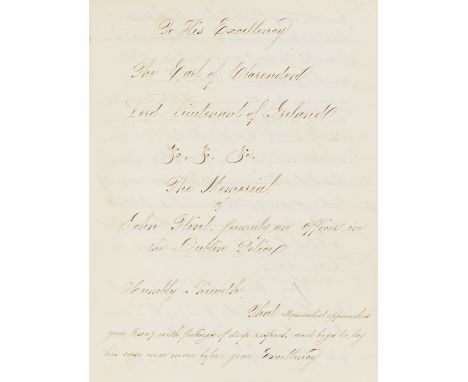 To His Excellency
The Earl of Clarendon
Lord Lieutenant of Ireland
&c. &c. &c.
The Memorial
of
John Flint, formerly an officer in
the Dublin Police
Humbly Sheweth.
That Memorialist approaches
your Excy with feelings of deep respect, and begs to lay
his case once more before your Excellency